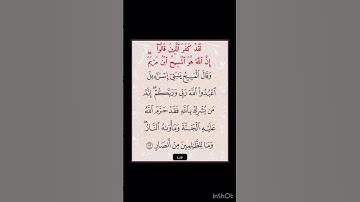 لَقَدْ كَفَرَ ٱلَّذِينَ قَالُوٓا۟
إِنَّ ٱللَّهَ هُوَ ٱلْمَسِيحُ ٱبْنُ مَرْيَمَ ۖ
وَقَالَ ٱلْمَسِيحُ يَـٰبَنِىٓ إِسْرَٰٓءِيلَ
ٱعْبُدُوا۟ ٱللَّهَ رَبِّى وَرَبَّكُمْ ۖ إِنَّهُۥ
مَن يُشْرِكْ بِٱللَّهِ فَقَدْ حَرَّمَ ٱللَّهُ
عَلَيْهِ ٱلْجَنَّةَ وَمَأْوَىٰهُ ٱلنَّارُ ۖ
وَمَا لِلظَّـٰلِمِينَ مِنْ أَنصَارٍ ٧٢
InShOt